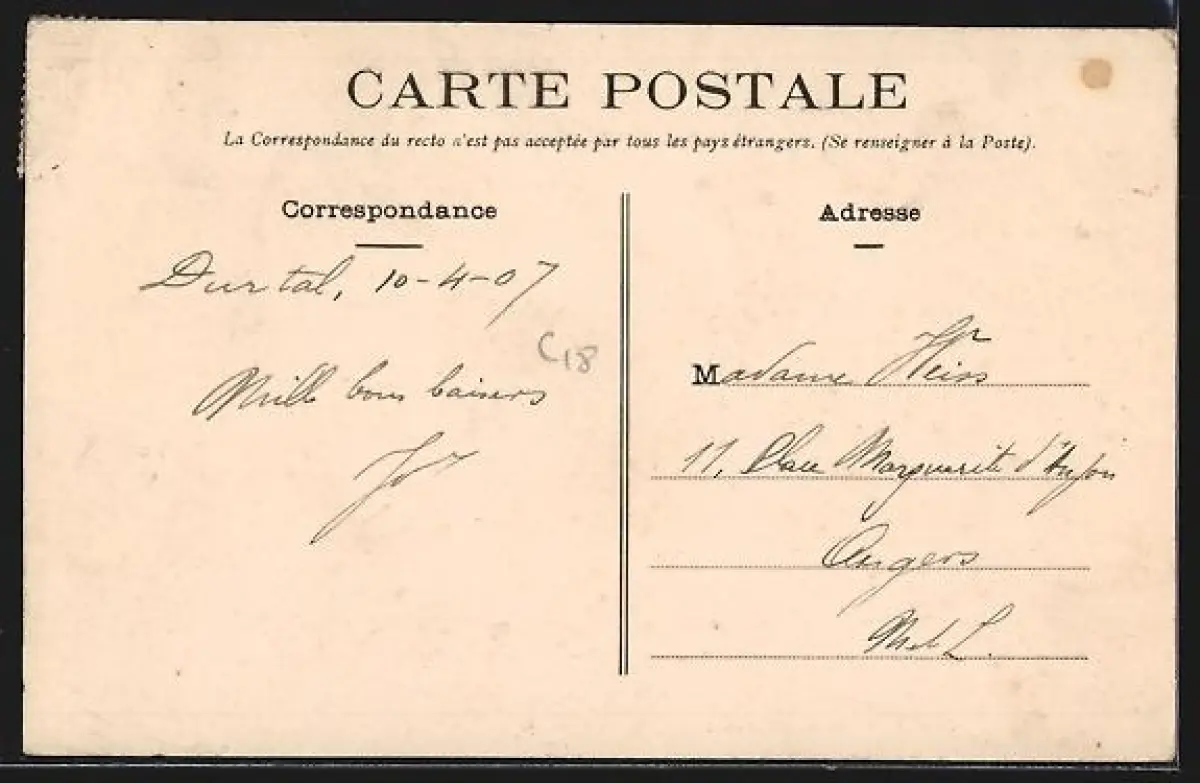 CARTE POSTALE
La Correspondance du recto n'est pas acceptée par tous les pays étrangers. (Se renseigner à la Poste).
Correspondance
Durtal, 10-4-07
C18
Mille bons baisers
Adresse
Madame Weiss
11, Place Marguerite d'Anjou
Angers
M et L.